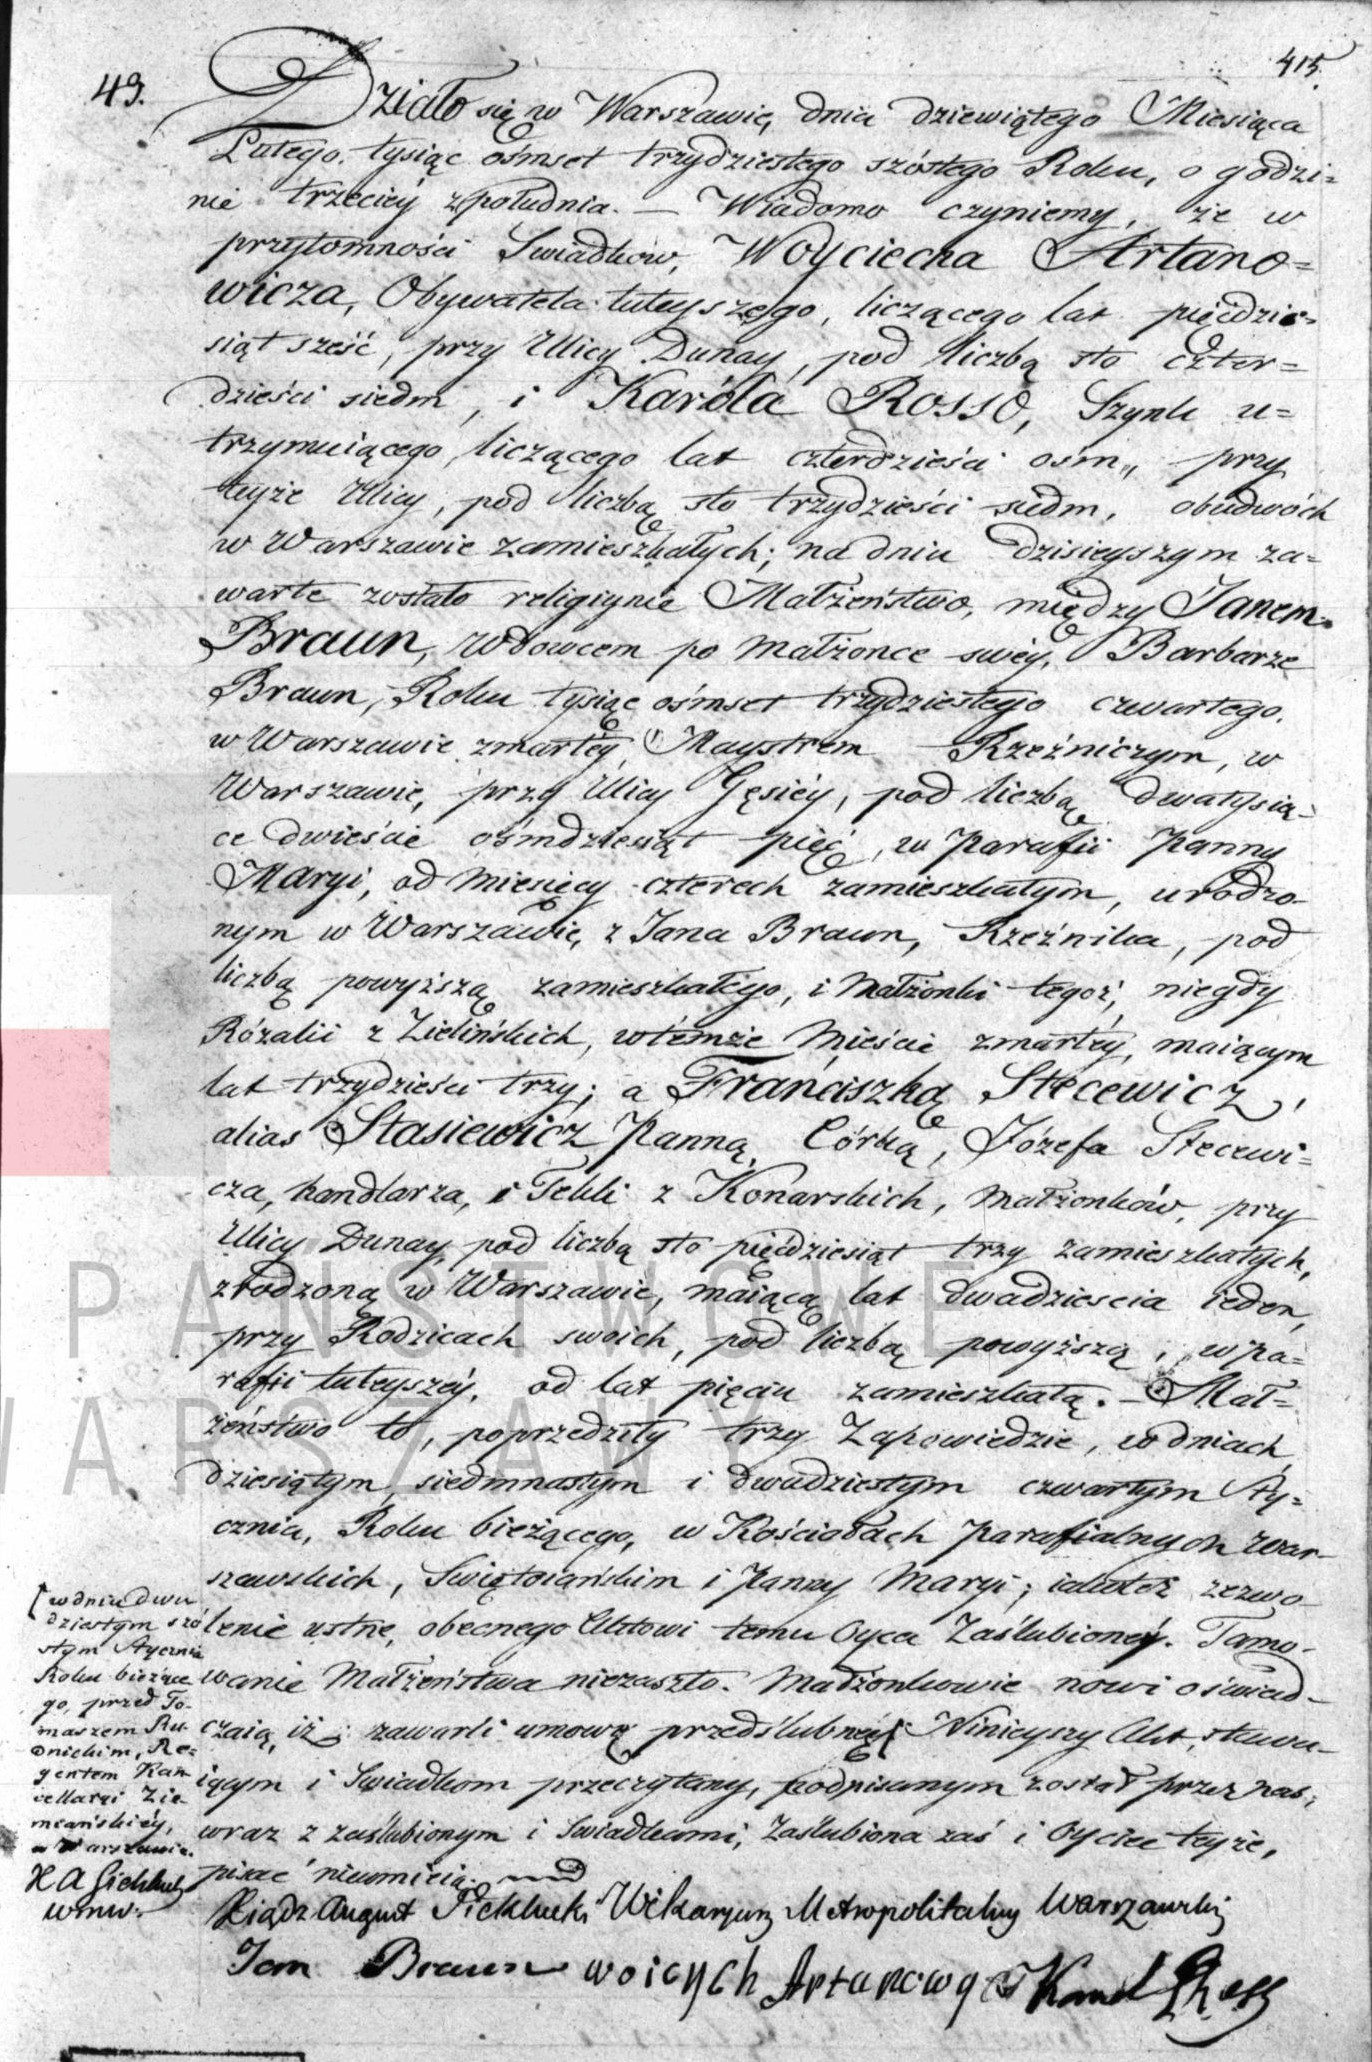 415.
49.
Działo się w Warszawie, dnia dziewiątego Miesiąca
Lutego. tysiąc ośmset trzydziestego szóstego Roku, o godzi=
nie trzeciéy z południa. — Wiadomo czyniemy, że w
przytomności Swiadków, Woyciecha Artano=
wicza, Obywatela tuteyszego, liczącego lat pięćdzie=
siąt sześć, przy Ulicy Dunay, pod liczbą sto czter=
dzieści siedm, i Karóla Rosso, Szynk u=
trzymuiącego, liczącego lat czterdzieści osm, przy
teyże Ulicy, pod liczbą sto trzydzieści siedm, obudwóch
w Warszawie zamieszkałych; na dniu dzisieyszym za=
warte zostało religiynie Małżeństwo, między Janem
Braun, Wdowcem po Małżonce swéy, Barbarze
Braun, Roku tysiąc ośmset trzydziestego czwartego.
w Warszawie zmarłéy, Maystrem Rzeźniczym, w
Warszawie, przy Ulicy Gęsiéy, pod liczbą dwatysią=
ce dwieście ośmdziesiąt pięć, w Parafii Panny
Maryi, od Miesięcy czterech zamieszkałym, urodzo-
nym w Warszawie, z Jana Braun, Rzeźnika, pod
liczbą powyższą zamieszkałego, i Małżonki tegoż, niegdy
Rózalii z Zielińskich, w témże Mieście zmarłéy, maiącym
lat trzydzieści trzy; a Franciszką Stecewicz,
alias Stasiewicz Panną, Córką, Józefa Stecewi=
cza, handlarza, i Tekli z Konarskich, Małżonków, przy
Ulicy Dunay, pod liczbą sto pięćdziesiąt trzy zamieszkałych,
zrodzoną w Warszawie, maiącą lat dwadzieścia ieden,
przy Rodzicach swoich, pod liczbą powyższą, w Pa=
rafii tuteyszéy, od lat pięciu zamieszkałą. — Mał=
żeństwo to, poprzedziły trzy Zapowiedzie, w dniach
dziesiątym, siedmnastym i dwudziestym czwartym Sty=
cznia, Roku bieżącego, w Kościołach Parafialnych War-
szawskich, Świętoiańskim i Panny Maryi; iakoteż zezwo-
lenie ustne, obecnego Aktowi temu Oyca Zaślubionéy. Tamo-
wanie Małżeństwa niezaszło. Małżonkowie nowi oświad-
czaią, iż zawarli umowę przedślubną [ Ninieyszy Akt, stawa-
iącym i Swiadkom przeczytany, podpisanym został przez nas,
wraz z zaślubionym i Swiadkami, Zaślubiona zaś i Oyciec teyże,
pisać nieumieią.
[ w dniu dwu
dziestym szó
stym Stycznia
Roku bieżące
go, przed To-
maszem Ru-
dnickim, Re=
gentem Kan
cellaryi Zie-
miańskiéy,
w Warszawie.
X A
Ksiądz August Wikaryusz Metropolitalny Warszawski
Jan Braun